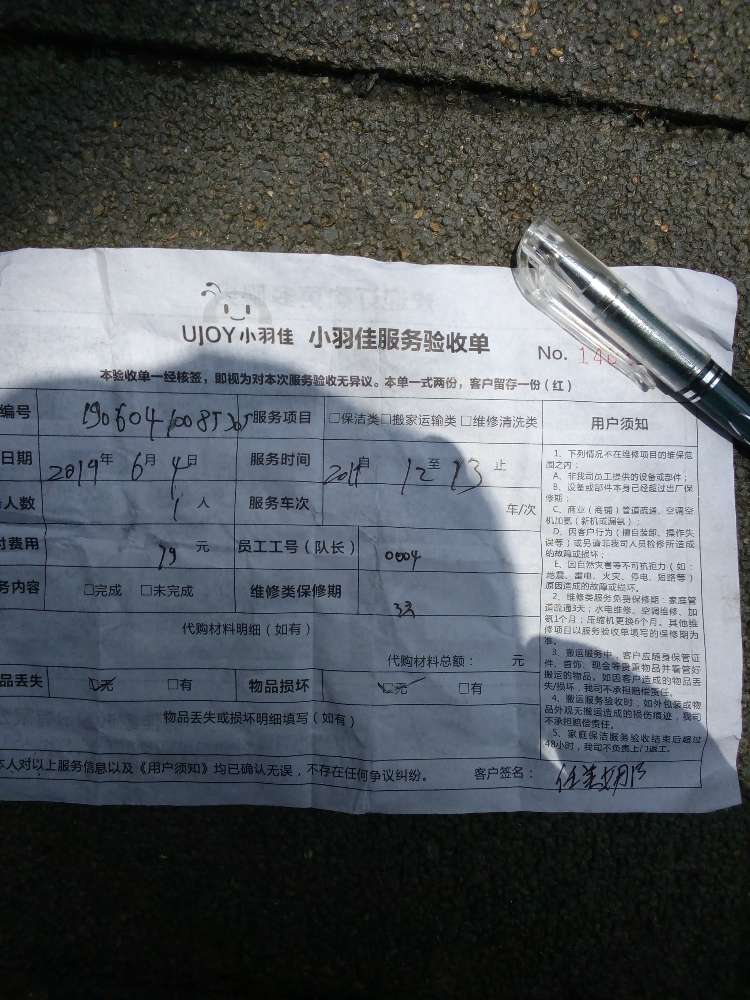 UJOY小羽佳 小羽佳服务验收单
No. 146
本验收单一经核签，即视为对本次服务验收无异议。本单一式两份，客户留存一份（红）
编号 19060410085305 服务项目 □保洁类□搬家运输类□维修清洗类
日期 2019年 6月 4日 服务时间 自 12 至 13 止
人数 1 人 服务车次 车/次
付费用 79 元 员工工号（队长） 0004
务内容 □完成 □未完成 维修类保修期 3天
代购材料明细（如有）
代购材料总额： 元
品丢失 □无 □有 物品损坏 □无 □有
物品丢失或损坏明细填写（如有）
本人对以上服务信息以及《用户须知》均已确认无误，不存在任何争议纠纷。 客户签名：
用户须知
1、下列情况不在维修项目的维保范
围之内：
A、非我司员工提供的设备或部件；
B、设备或部件本身已经超过出厂保
修期；
C、商业（商铺）管道疏通、空调空
机加氨（新机或漏氨）；
D、因客户行为（擅自装卸、操作失
误等）或另请非我司人员检修所造成
的故障或损坏；
E、因自然灾害等不可抗拒力（如：
地震、雷电、火灾、停电、短路等）
原因造成的故障或损坏。
2、维修类服务免受保修期：家庭管
道疏通3天；水电维修、空调维修、加
氨1个月；压缩机更换6个月。其他维
修项目以服务验收单填写的保修期为
准。
3、搬运服务中，客户应随身保管证
件、首饰、现金等贵重物品并看管好
搬运的物品。如因客户造成的物品丢
失/损坏，我司不承担赔偿责任。
4、搬运服务验收时，如外包装或物
品外观无搬运造成的损伤痕迹，我司
不承担赔偿责任。
5、家庭保洁服务验收结束后超过
48小时，我司不负责上门返工。